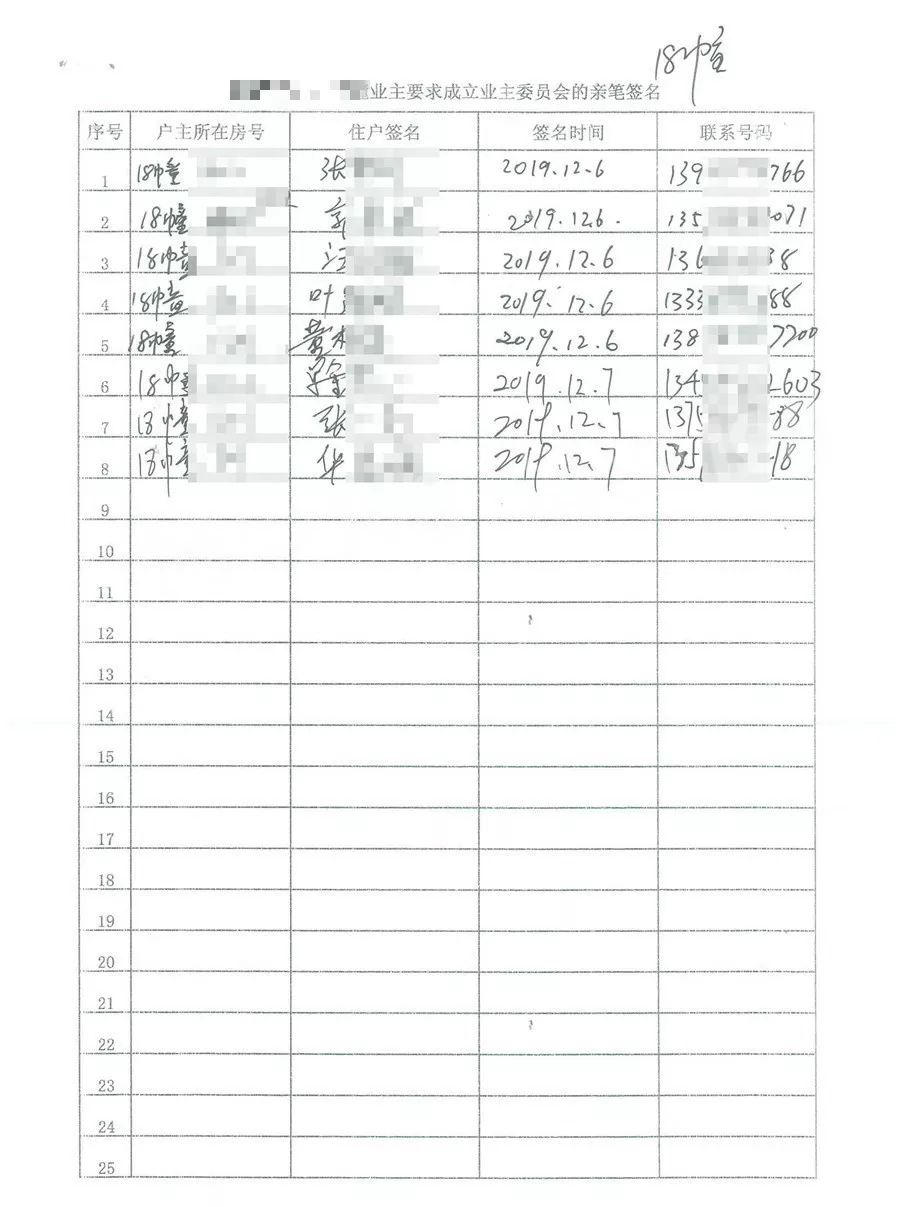 18幢
业主要求成立业主委员会的亲笔签名
序号 户主所在房号 住户签名 签名时间 联系号码
1 18幢 张 2019.12.6 139 766
2 18幢 2019.12.6. 135 071
3 18幢 汪 2019.12.6 136 38
4 18幢 叶 2019.12.6 1333 88
5 18幢 黄 2019.12.6 138 7200
6 18幢 2019.12.7 134 2603
7 18幢 张 2019.12.7 1375 88
8 18幢 华 2019.12.7 135 18
9
10
11
12
13
14
15
16
17
18
19
20
21
22
23
24
25